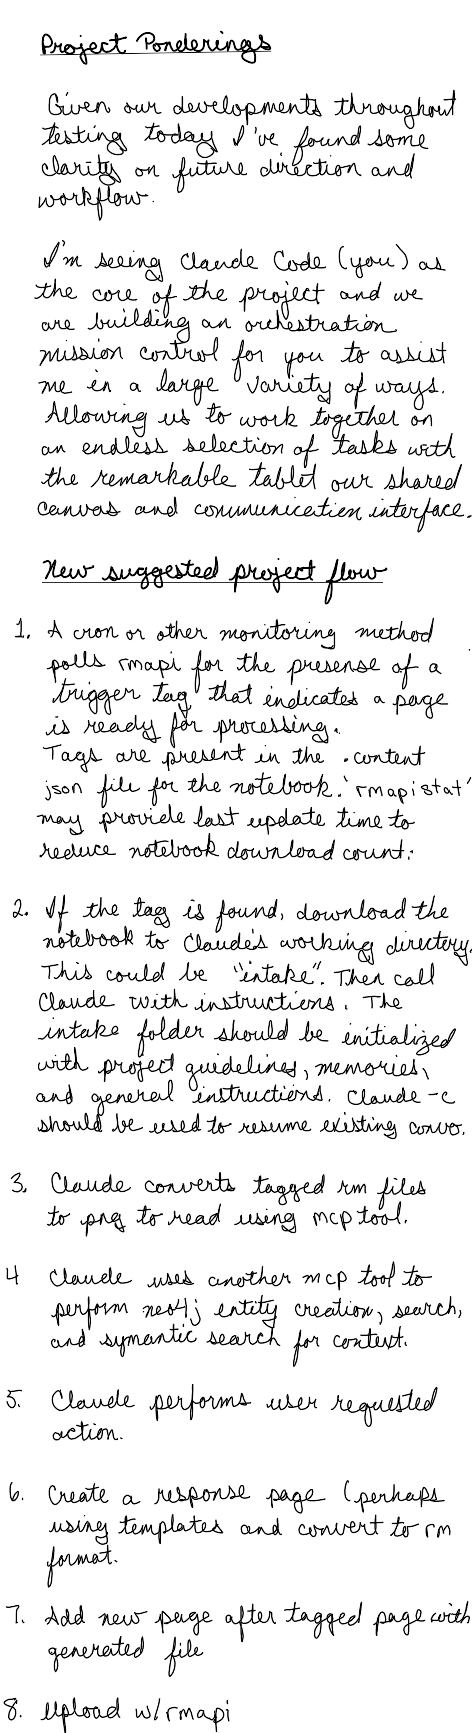 Project Ponderings
Given our developments throughout
testing today I've found some
clarity on future direction and
workflow.
I'm seeing Claude Code (you) as
the core of the project and we
are building an orchestration
mission control for you to assist
me in a large variety of ways.
Allowing us to work together on
an endless selection of tasks with
the remarkable tablet our shared
canvas and communication interface.
New suggested project flow
1. A cron or other monitoring method
polls rmapi for the presense of a
trigger tag that indicates a page
is ready for processing.
Tags are present in the .content
json file for the notebook. 'rmapi stat'
may provide last update time to
reduce notebook download count.
2. If the tag is found, download the
notebook to Claude's working directory.
This could be "intake". Then call
Claude with instructions. The
intake folder should be initialized
with project guidelines, memories,
and general instructions. Claude -c
should be used to resume existing convo.
3. Claude converts tagged rm files
to png to read using mcp tool.
4 Claude uses another mcp tool to
perform neo4j entity creation, search,
and symantic search for context.
5. Claude performs user requested
action.
6. Create a response page (perhaps
using templates and convert to rm
format.
7. Add new page after tagged page with
generated file
8. Upload w/rmapi